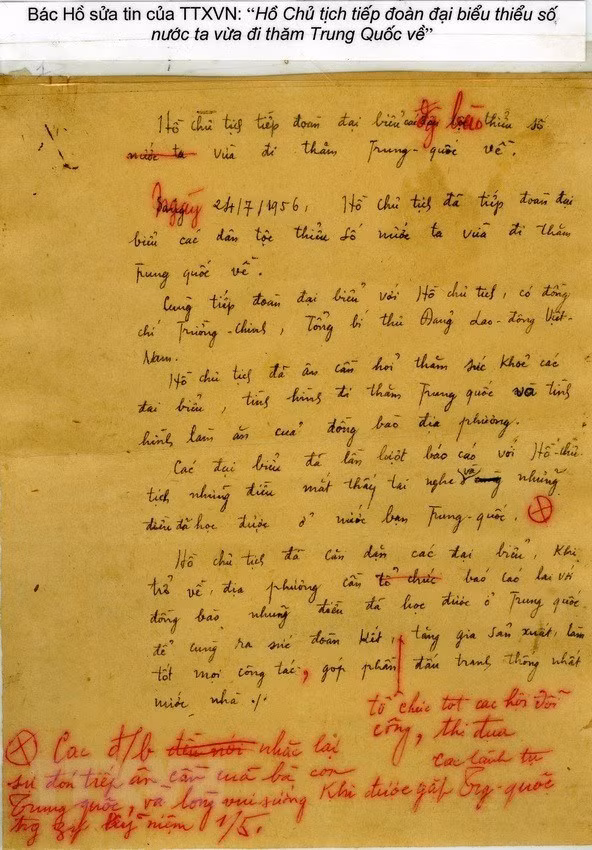 Bác Hồ sửa tin của TTXVN: “Hồ Chủ tịch tiếp đoàn đại biểu thiểu số
nước ta vừa đi thăm Trung Quốc về”
Hồ chủ tịch tiếp đoàn đại biểu thiểu số
nước ta vừa đi thăm Trung-quốc về.
Ngày 24/7/1956, Hồ chủ tịch đã tiếp đoàn đại
biểu các dân tộc thiểu số nước ta vừa đi thăm
Trung quốc về.
Cùng tiếp đoàn đại biểu với Hồ chủ tịch, có đồng
chí Trường-Chinh, Tổng bí thư Đảng Lao-động Việt-
Nam.
Hồ chủ tịch đã ân cần hỏi thăm sức khoẻ các
đại biểu, tình hình đi thăm Trung quốc và tình
hình làm ăn của đồng bào địa phương.
Các đại biểu đã lần lượt báo cáo với Hồ-chủ-
tịch những điều mắt thấy tai nghe và những
điều đã học được ở nước bạn Trung-quốc.
Hồ chủ tịch đã căn dặn các đại biểu, khi
trở về, địa phương cần tổ chức báo cáo lại với
đồng bào những điều đã học được ở Trung quốc
để cùng ra sức đoàn kết, tăng gia sản xuất, làm
tốt mọi công tác, góp phần đấu tranh thống nhất
nước nhà ./.
tổ chức tot cac hội đổi
công, thi đua
Cac đ/b nhắc lại
sự đón tiếp ân cần của bà con
Trung quốc, và lòng vui sướng khi được gặp
cac lãnh tụ
Trg-quốc
kỷ niệm 1/5.